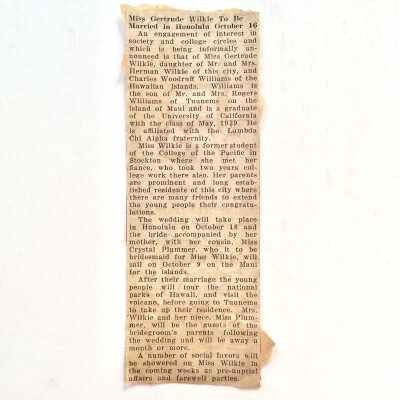 Miss Gertrude Wilkie To Be
Married in Honolulu October 16
An engagement of interest in
society and college circles and
which is being informally an-
nounced is that of Miss Gertrude
Wilkie, daughter of Mr. and Mrs.
Herman Wilkie of this city, and
Charles Woodruff Williams of the
Hawaiian Islands. Williams is
the son of Mr. and Mrs. Rogers
Williams of Tuuneme on the
island of Maui and is a graduate
of the University of California
with the class of May, 1929. He
is affiliated with the Lambda
Chi Alpha fraternity.
Miss Wilkie is a former student
of the College of the Pacific in
Stockton where she met her
fiance, who took two years col-
lege work there also. Her parents
are prominent and long estab-
lished residents of this city where
there are many friends to extend
the young people their congratu-
lations.
The wedding will take place
in Honolulu on October 16 and
the bride accompanied by her
mother, with her cousin, Miss
Crystal Plummer, who it to be
bridesmaid for Miss Wilkie, will
sail on October 9 on the Maui
for the islands.
After their marriage the young
people will tour the national
parks of Hawaii, and visit the
volcano, before going to Tuuneme
to take up their residence. Mrs.
Wilkie and her niece, Miss Plum-
mer, will be the guests of the
bridegroom's parents following
the wedding and will be away a
month or more.
A number of social favors will
be showered on Miss Wilkie in
the coming weeks as pre-nuptial
affairs and farewell parties.